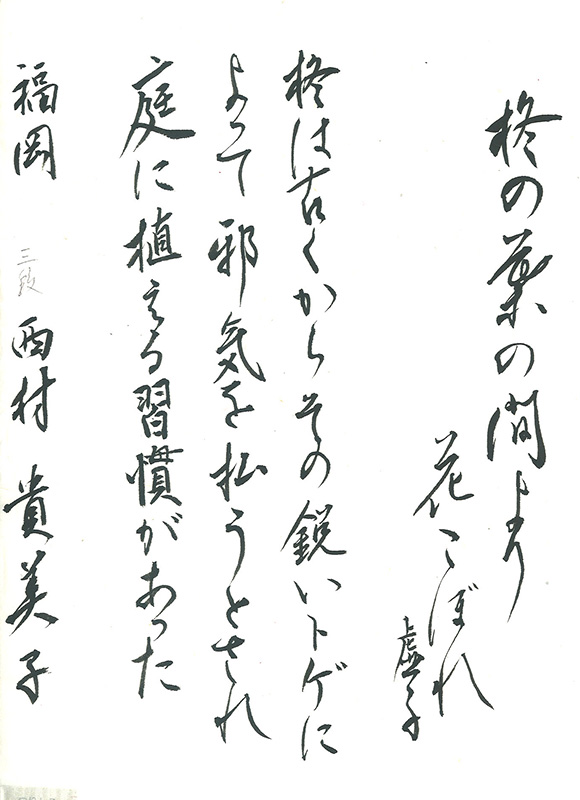 柊の葉の間より
花こぼれ
虚子
柊は古くからその鋭いトゲに
よって邪気を払うとされ
庭に植える習慣があった
福岡 三段 西村貴美子